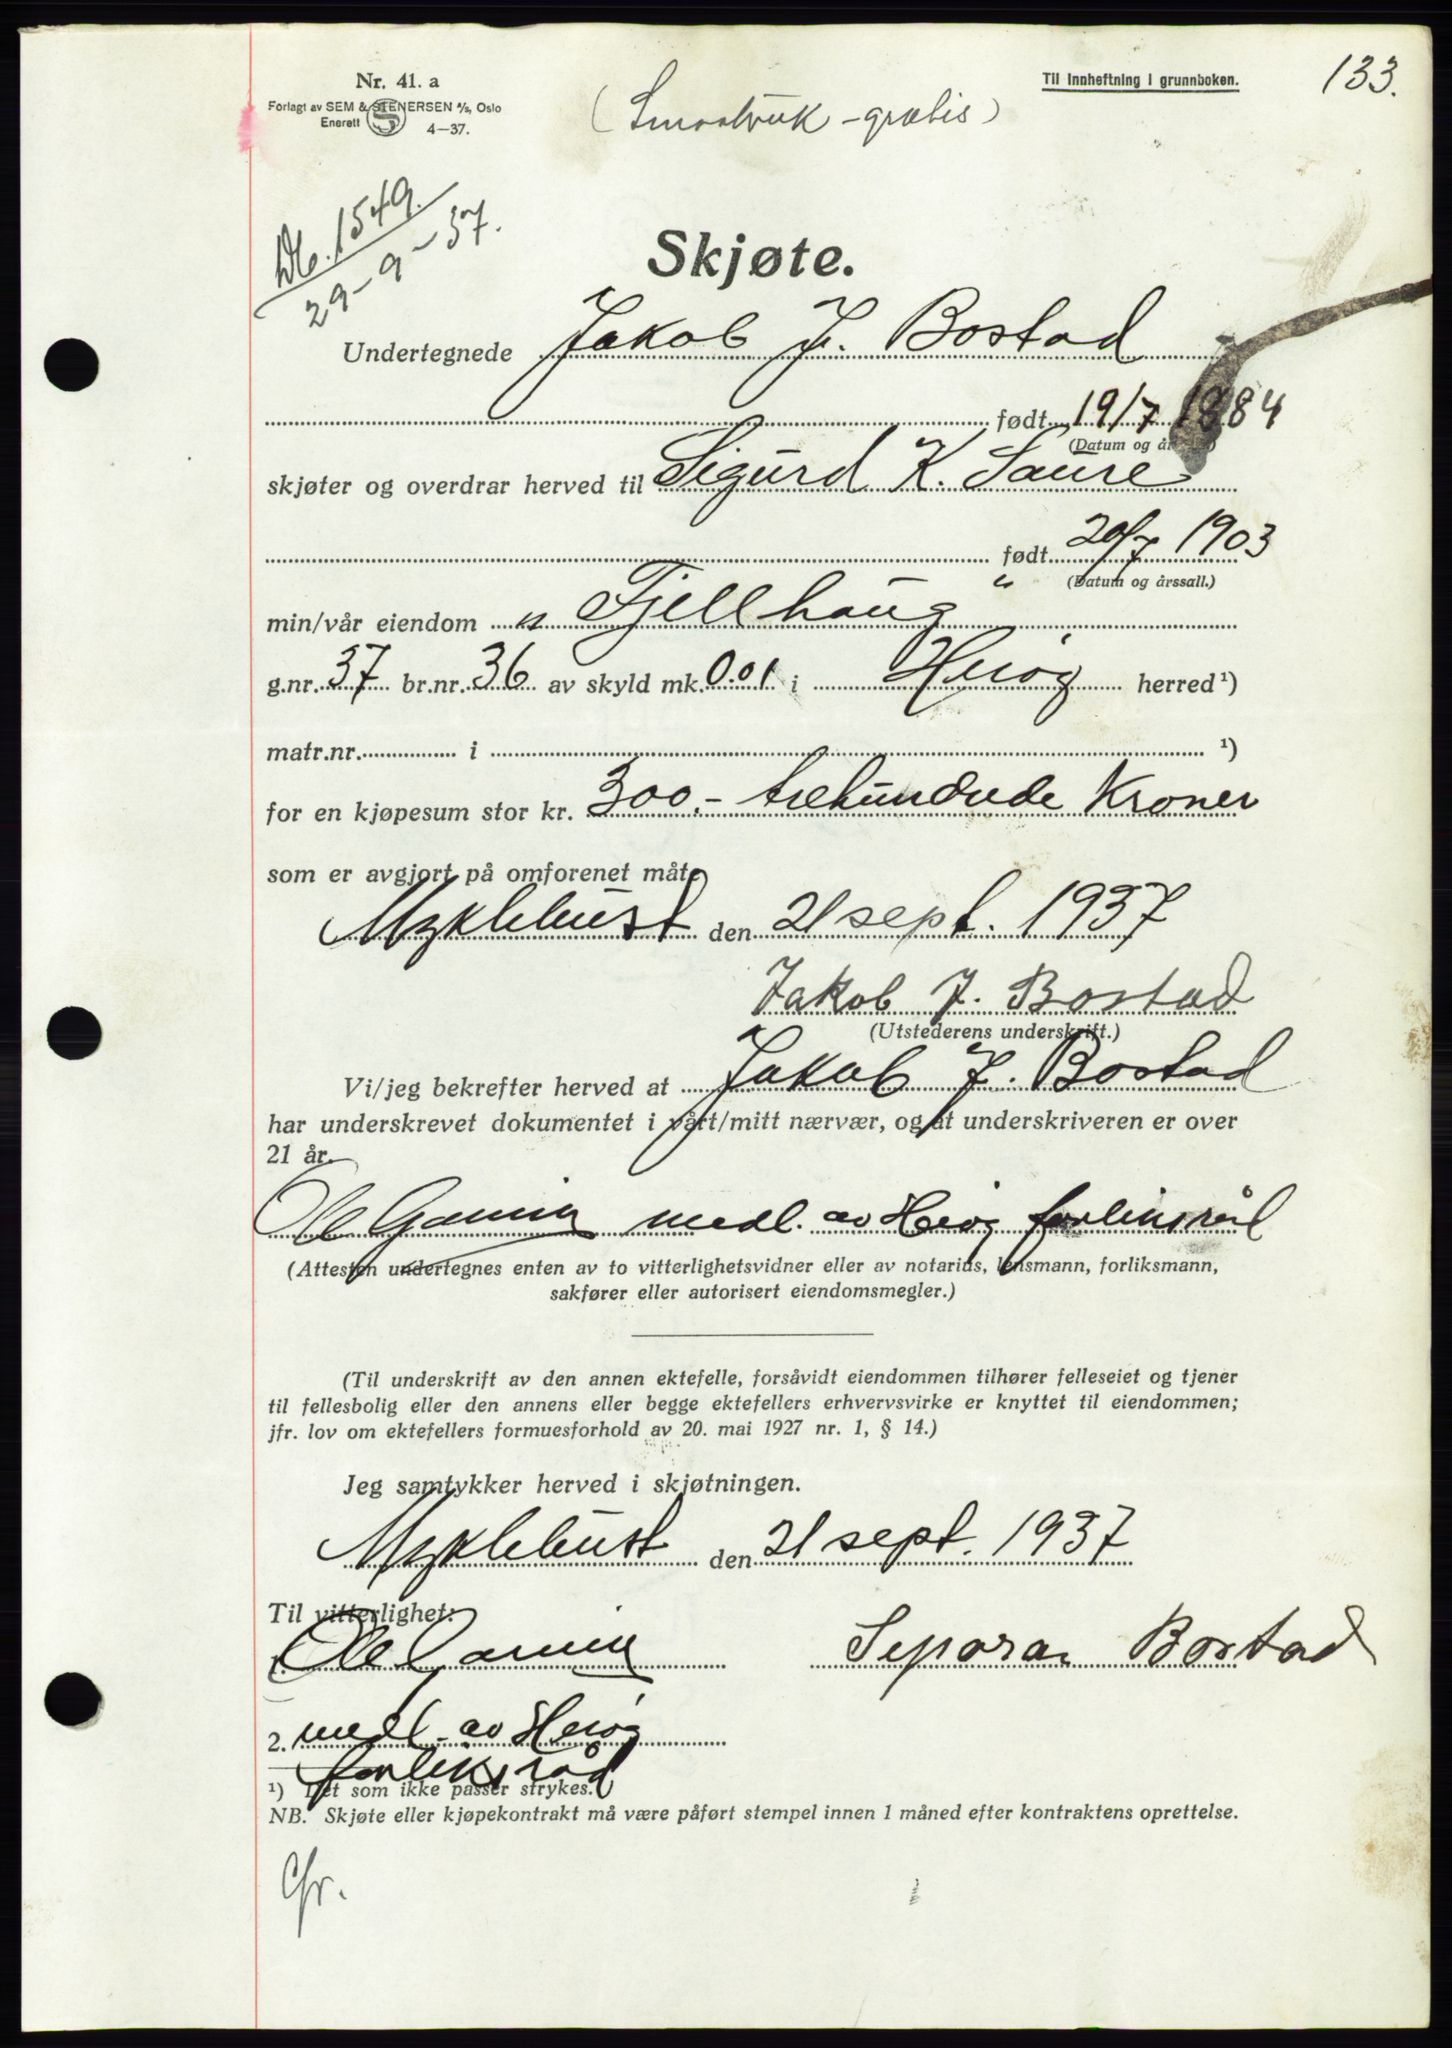 Nr. 41. a
Forlagt av SEM & STENERSEN A/s, Oslo
Enerett 4—37.
Til innheftning i grunnboken.
133.
(Smaabruk - gratis)
Db. 1549.
29-9-37.
Skjøte.
Undertegnede Jakob J. Bostad
født 19/7 1884
(Datum og årssall.)
skjøter og overdrar herved til Sigurd K. Saure
født 20/7 1903
(Datum og årssall.)
min/vår eiendom " Fjellhaug "
g.nr. 37 br.nr. 36 av skyld mk. 0.01 i Herøy herred ¹)
matr.nr. i ¹)
for en kjøpesum stor kr. 300,- trehundrede Kroner
som er avgjort på omforenet måte
Myklebust den 21 sept. 1937
Jakob J. Bostad
(Utstederens underskrift.)
Vi/jeg bekrefter herved at Jakob J. Bostad
har underskrevet dokumentet i vårt/mitt nærvær, og at underskriveren er over
21 år.
Ole medl. av Herøy forliksråd
(Attesten undertegnes enten av to vitterlighetsvidner eller av notarius, lensmann, forliksmann,
sakfører eller autorisert eiendomsmegler.)
(Til underskrift av den annen ektefelle, forsåvidt eiendommen tilhører felleseiet og tjener
til fellesbolig eller den annens eller begge ektefellers erhvervsvirke er knyttet til eiendommen;
jfr. lov om ektefellers formuesforhold av 20. mai 1927 nr. 1, § 14.)
Jeg samtykker herved i skjøtningen.
Myklebust den 21 sept. 1937
Til vitterlighet:
1. Ole
Bostad
2. medl. av Herøy
forliksråd
¹) Det som ikke passer strykes.
NB. Skjøte eller kjøpekontrakt må være påført stempel innen 1 måned efter kontraktens oprettelse.